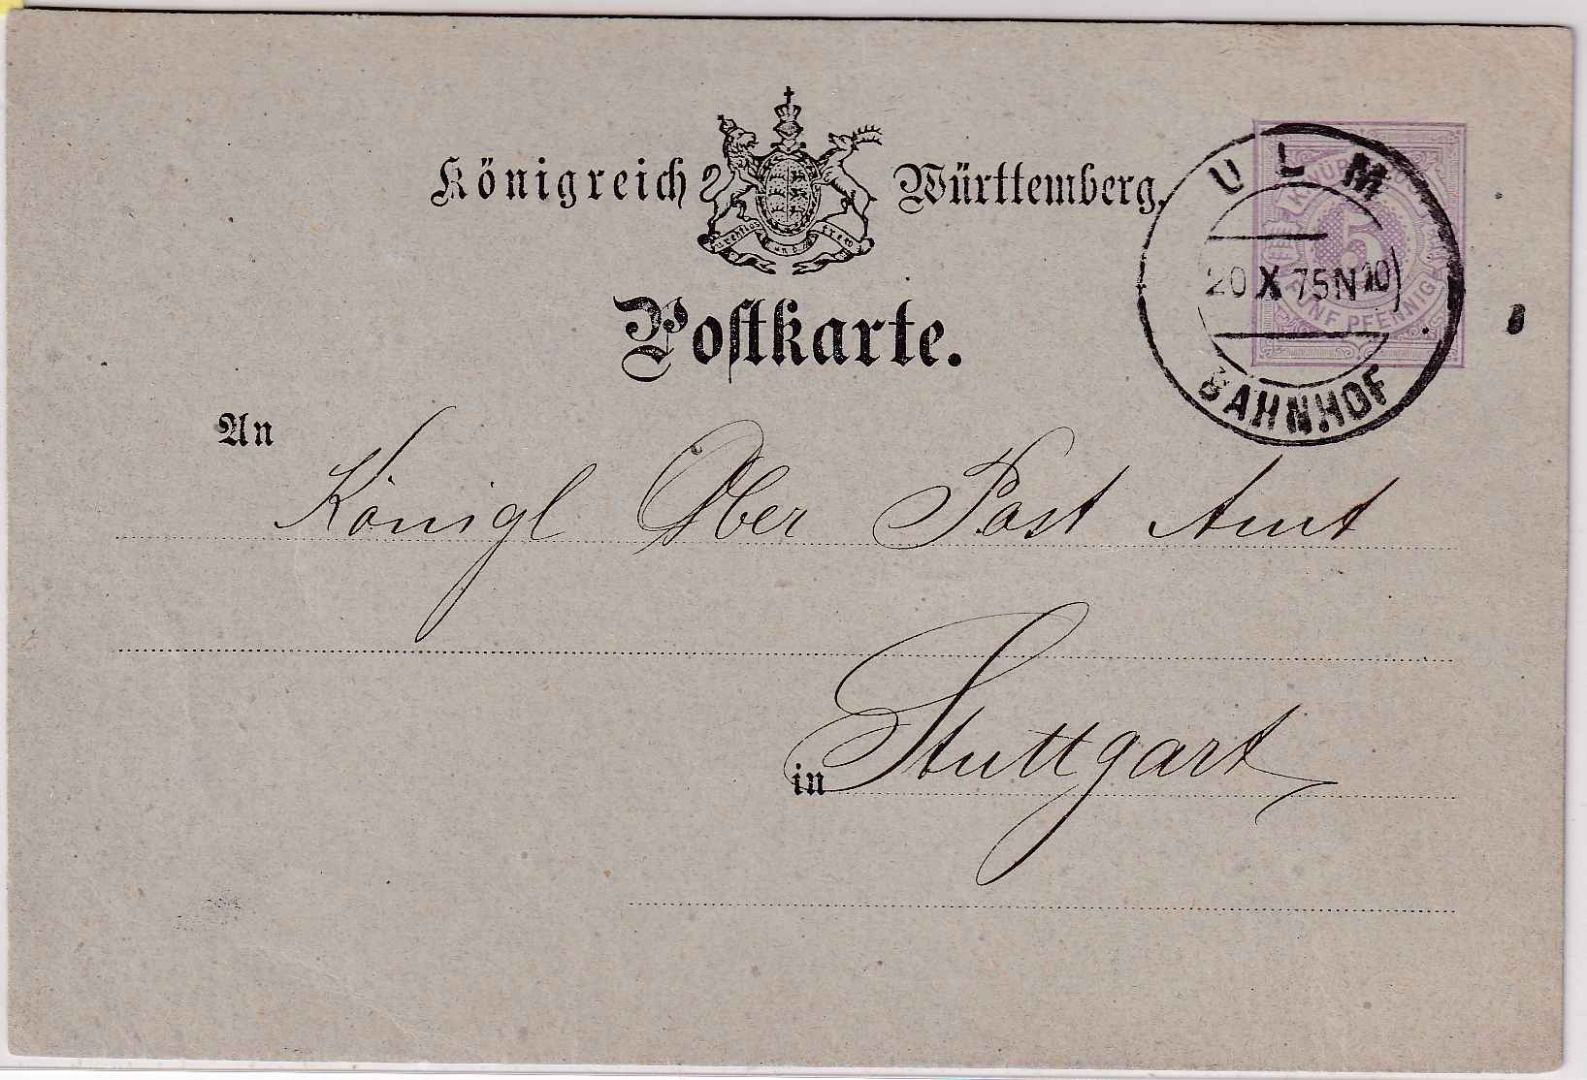 Königreich Württemberg.
Furchtlos und trew
Postkarte.
K. WÜRTT. POST
5
FÜNF PFENNIG
ULM
20 X 75 N 10)
BAHNHOF
An
Königl Ober Post Amt
in Stuttgart